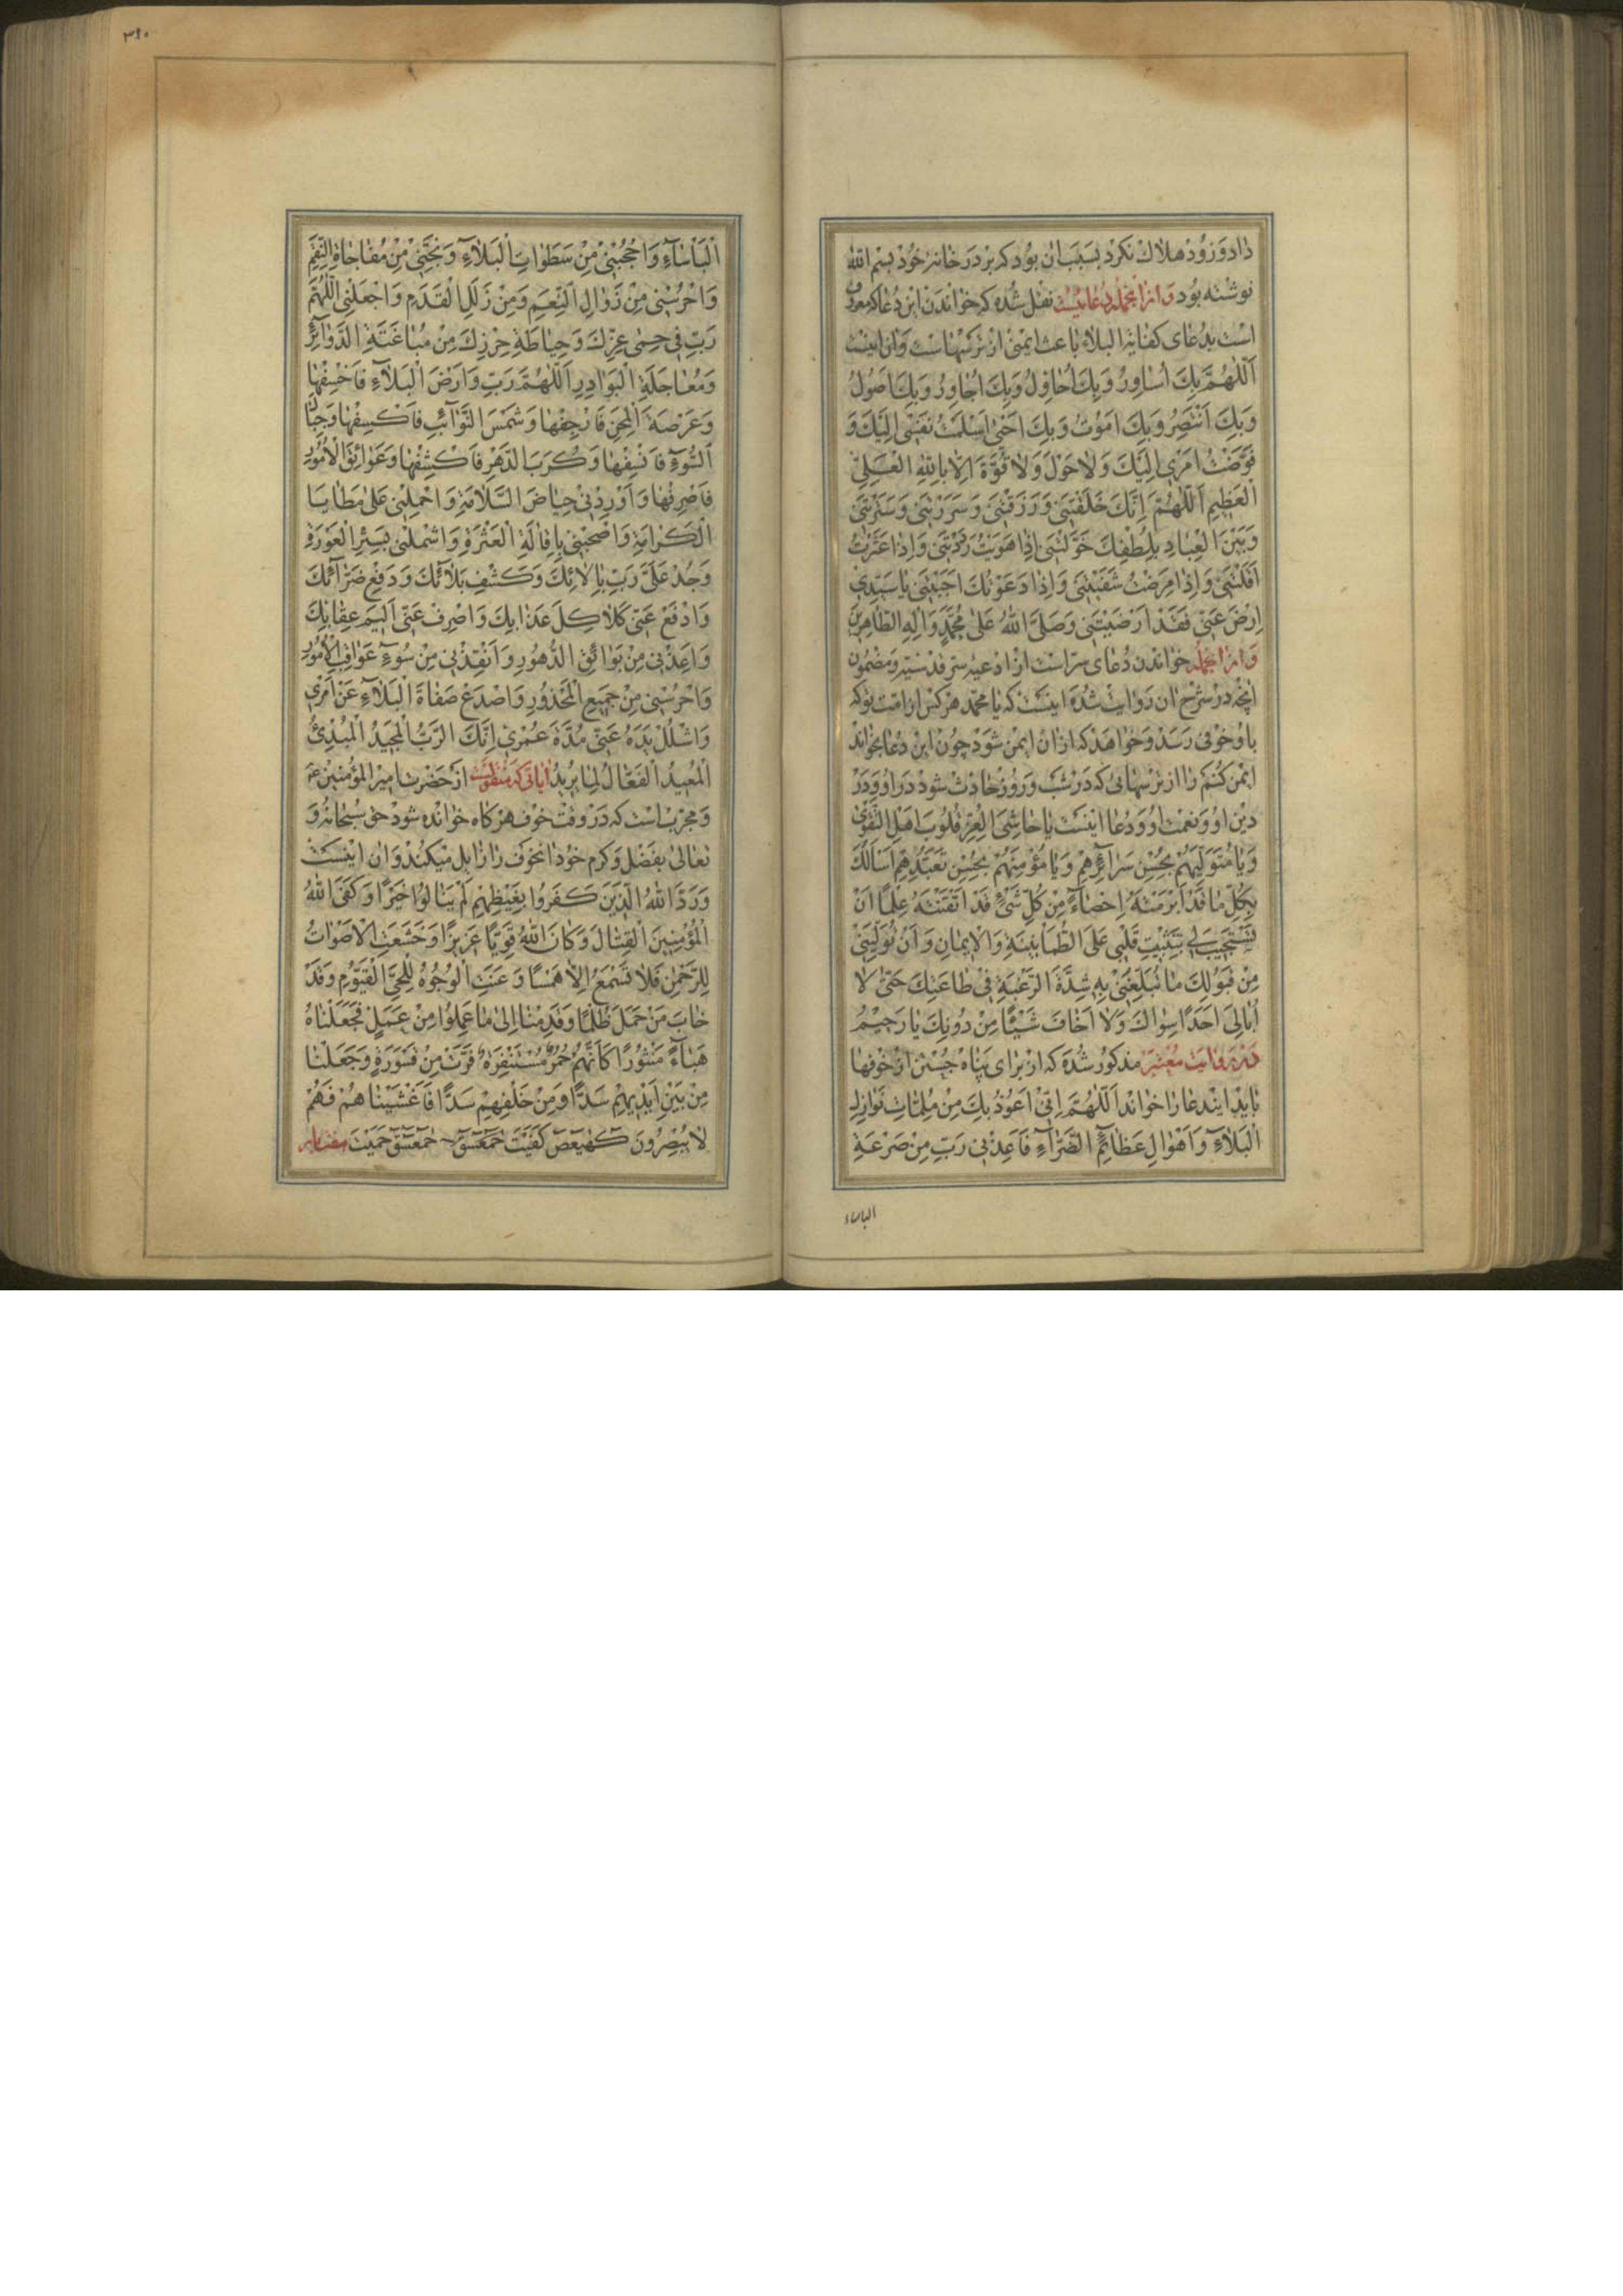 داد و زود هلاك نكرد بسبب ان بود كه بر در خانهٔ خود بسم الله
نوشته بود و از انجمله دعائيست نقل شده كه خواندن اين دعا كه معروف
است بدعاى كفاية البلاء باعث ايمنى از ترسهاست و ان اينست
اَللّهُمَّ بِكَ اُساوِرُ وَبِكَ اُحاوِلُ وَبِكَ اُجاوِرُ وَبِكَ اَصُولُ
وَبِكَ اَنْتَصِرُ وَبِكَ اَمُوتُ وَبِكَ اَحْيى اَسْلَمْتُ نَفْسى اِلَيْكَ وَ
فَوَّضْتُ اَمْرى اِلَيْكَ وَلا حَوْلَ وَلا قُوَّةَ اِلّا بِاللهِ الْعَلِىِّ
الْعَظِيمِ اَللّهُمَّ اِنَّكَ خَلَقْتَنى وَرَزَقْتَنى وَسَرَرْتَنى وَسَتَرْتَنى
وَبَيْنَ الْعِبادِ بِلُطْفِكَ خَوَّلْتَنى اِذا هَوَيْتُ رَدَدْتَنى وَاِذا عَثَرْتُ
اَقَلْتَنى وَاِذا مَرِضْتُ شَفَيْتَنى وَاِذا دَعَوْتُكَ اَجَبْتَنى يا سَيِّدى
اِرْضَ عَنّى فَقَدْ اَرْضَيْتَنى وَصَلَّى اللهُ عَلى مُحَمَّدٍ وَالِهِ الطّاهِرينَ
و از انجمله خواندن دعاى سرّ است از ادعيه سر قدسيه و مضمون
انچه در شرح ان روايت شده اينست كه يا محمد هر كس از امت تو كه
باو خوفى رسد و خواهد كه از ان ايمن شود چون اين دعا بخواند
ايمن كنم او را از ترسهائى كه در شب و روز حادث شود در او و در
دين او و نعمت او و دعا اينست يا حاشِىَ الْعِزِّ قُلُوبَ اَهْلِ التَّقْوى
وَيا مُتَوَلّيهُمْ بِحُسْنِ سَرائِرِهِمْ وَيا مُؤْمِنَهُمْ بِحُسْنِ تَعَبُّدِهِمْ اَسْاَلُكَ
بِكُلِّ ما قَدْ اَبْرَمْتَهُ اِحْصاءً مِنْ كُلِّ شَىْءٍ قَدْ اَتْقَنْتَهُ عِلْمًا اَنْ
تَسْتَجيبَ لى بِتَثْبيتِ قَلْبى عَلَى الطُّمَأْنينَةِ وَالْايمانِ وَاَنْ تُوَلِّيَنى
مِنْ قَبُولِكَ ما تُبَلِّغُنى بِهِ شِدَّةَ الرَّغْبَةِ فى طاعَتِكَ حَتّى لا
اُبالِىَ اَحَدًا سِواكَ وَلا اَخافَ شَيْئًا مِنْ دُونِكَ يا رَحيمُ
در روايت معتبر مذكور شده كه از براى پناه جستن از خوفها
بايد ايندعا را خواند اَللّهُمَّ اِنّى اَعُوذُ بِكَ مِنْ مُلِمّاتِ نَوازِلِ
الْبَلاءِ وَاَهْوالِ عَظائِمِ الضَّرّاءِ فَاَعِذْنى رَبِّ مِنْ صَرْعَةِ
الباساء
٣١٠
الْبَأْساءِ وَاحْجُبْنى مِنْ سَطَواتِ الْبَلاءِ وَنَجِّنى مِنْ مُفاجاةِ النِّقَمِ
وَاحْرُسْنى مِنْ زَوالِ النِّعَمِ وَمِنْ زَلَلِ الْقَدَمِ وَاجْعَلْنِى اللّهُمَّ
رَبِّ فى حِمى عِزِّكَ وَحِياطَةِ حِرْزِكَ مِنْ مُباغَتَةِ الدَّوائِرِ
وَمُعاجَلَةِ الْبَوادِرِ اَللّهُمَّ رَبِّ وَاَرْضَ الْبَلاءِ فَاخْسِفْها
وَعَرْصَةَ الْمِحَنِ فَارْجِفْها وَشَمْسَ النَّوائِبِ فَاكْسِفْها وَجِبالَ
السُّوءِ فَانْسِفْها وَكُرَبَ الدَّهْرِ فَاكْشِفْها وَعَوائِقَ الْاُمُورِ
فَاصْرِفْها وَاَوْرِدْنى حِياضَ السَّلامَةِ وَاحْمِلْنى عَلى مَطايا
الْكَرامَةِ وَاصْحَبْنى بِاِقالَةِ الْعَثْرَةِ وَاشْمَلْنى بِسَتْرِ الْعَوْرَةِ
وَجُدْ عَلَىَّ رَبِّ بِالائِكَ وَكَشْفِ بَلائِكَ وَدَفْعِ ضَرّائِكَ
وَادْفَعْ عَنّى كَلاكِلَ عَذابِكَ وَاصْرِفْ عَنّى اَليمَ عِقابِكَ
وَاَعِذْنى مِنْ بَوائِقِ الدُّهُورِ وَاَنْقِذْنى مِنْ سُوءِ عَواقِبِ الْاُمُورِ
وَاحْرُسْنى مِنْ جَميعِ الْمَحْذُورِ وَاصْدَعْ صَفاةَ الْبَلاءِ عَنْ اَمْرى
وَاشْلُلْ يَدَهُ عَنّى مُدَّةَ عُمْرى اِنَّكَ الرَّبُّ الْمَجيدُ الْمُبْدِئُ
الْمُعيدُ الْفَعّالُ لِما يُريدُ اياتى كه منقولست از حضرت امير المؤمنين ع
و مجرب است كه در وقت خوف هر كاه خوانده شود حق سبحانه و
تعالى بفضل و كرم خود انخوف را زايل ميكند و ان اينست
وَرَدَّ اللهُ الَّذينَ كَفَرُوا بِغَيْظِهِمْ لَمْ يَنالُوا خَيْرًا وَكَفَى اللهُ
الْمُؤْمِنينَ الْقِتالَ وَكانَ اللهُ قَوِيًّا عَزيزًا وَخَشَعَتِ الْاَصْواتُ
لِلرَّحْمنِ فَلا تَسْمَعُ اِلّا هَمْسًا وَعَنَتِ الْوُجُوهُ لِلْحَىِّ الْقَيُّومِ وَقَدْ
خابَ مَنْ حَمَلَ ظُلْمًا وَقَدِمْنا اِلى ما عَمِلُوا مِنْ عَمَلٍ فَجَعَلْناهُ
هَباءً مَنْثُورًا كَاَنَّهُمْ حُمُرٌ مُسْتَنْفِرَةٌ فَرَّتْ مِنْ قَسْوَرَةٍ وَجَعَلْنا
مِنْ بَيْنِ اَيْديهِمْ سَدًّا وَمِنْ خَلْفِهِمْ سَدًّا فَاَغْشَيْناهُمْ فَهُمْ
لا يُبْصِرُونَ كهيعص كُفيتُ حمعسق حمعسق حُميتُ